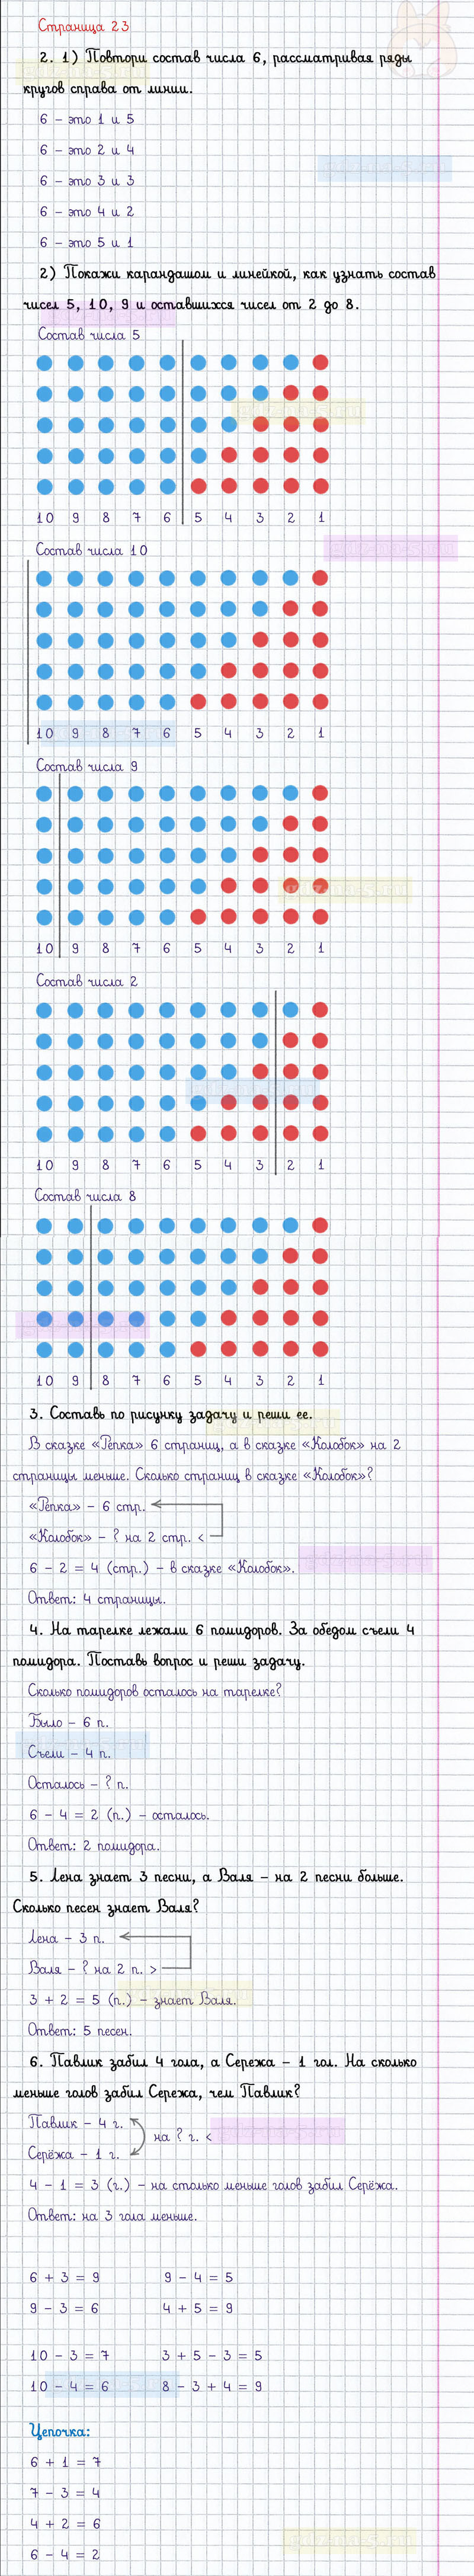 Страница 23
2. 1) Повтори состав числа 6, рассматривая ряды
кругов справа от линии.
6 – это 1 и 5
6 – это 2 и 4
6 – это 3 и 3
6 – это 4 и 2
6 – это 5 и 1
2) Покажи карандашом и линейкой, как узнать состав
чисел 5, 10, 9 и оставшихся чисел от 2 до 8.
Состав числа 5
10 9 8 7 6 5 4 3 2 1
Состав числа 10
10 9 8 7 6 5 4 3 2 1
Состав числа 9
10 9 8 7 6 5 4 3 2 1
Состав числа 2
10 9 8 7 6 5 4 3 2 1
Состав числа 8
10 9 8 7 6 5 4 3 2 1
3. Составь по рисунку задачу и реши ее.
В сказке «Репка» 6 страниц, а в сказке «Колобок» на 2
страницы меньше. Сколько страниц в сказке «Колобок»?
«Репка» – 6 стр.
«Колобок» – ? на 2 стр. <
6 – 2 = 4 (стр.) – в сказке «Колобок».
Ответ: 4 страницы.
4. На тарелке лежали 6 помидоров. За обедом съели 4
помидора. Поставь вопрос и реши задачу.
Сколько помидоров осталось на тарелке?
Было – 6 п.
Съели – 4 п.
Осталось – ? п.
6 – 4 = 2 (п.) – осталось.
Ответ: 2 помидора.
5. Лена знает 3 песни, а Валя – на 2 песни больше.
Сколько песен знает Валя?
Лена – 3 п.
Валя – ? на 2 п. >
3 + 2 = 5 (п.) – знает Валя.
Ответ: 5 песен.
6. Павлик забил 4 гола, а Сережа – 1 гол. На сколько
меньше голов забил Сережа, чем Павлик?
Павлик – 4 г.
на ? г. <
Серёжа – 1 г.
4 – 1 = 3 (г.) – на столько меньше голов забил Серёжа.
Ответ: на 3 гола меньше.
6 + 3 = 9 9 – 4 = 5
9 – 3 = 6 4 + 5 = 9
10 – 3 = 7 3 + 5 – 3 = 5
10 – 4 = 6 8 – 3 + 4 = 9
Цепочка:
6 + 1 = 7
7 – 3 = 4
4 + 2 = 6
6 – 4 = 2